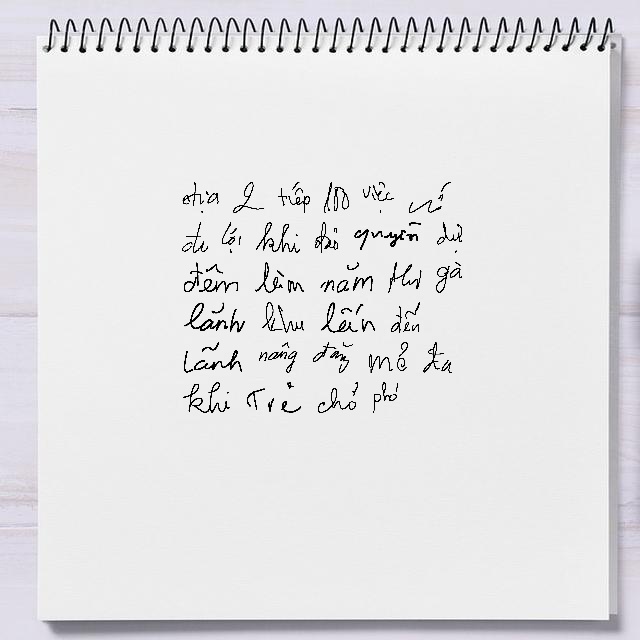 địa 2 tiếp 100 việc vẽ
đi lại khi đó quyền dự
đếm làm năm thư gà
lãnh khu lên đến
lãnh nâng đăng mẻ đa
khi Trẻ chở phó